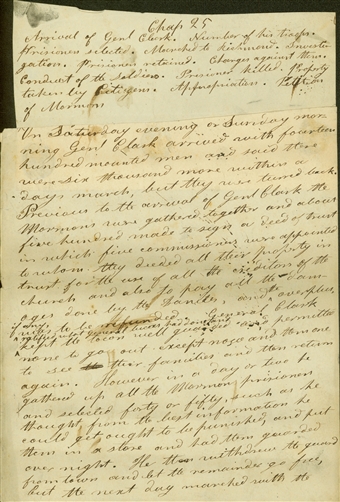 Chap. 25
Arrival of Genl Clark. Number of his troops.
Prisoners selected. Marched to Richmond. Investi-
gation. Prisoners retained. Charges against them.
Conduct of the Soldiers. Prisoner killed. Property
taken by Citizens. Appropriation. Petition
of Mormons
On Saturday evening or Sunday mor-
ning Genl Clark arrived with fourteen
hundred mounted men and said there
were six thousand more within a
days march, but they were turned back.
Previous to the arrival of Genl Clark the
Mormons were gathered together and about
five hundred made to sign a deed of trust
in which five commissioners were appointed
to whom they deeded all their property in
trust for the use of all the creditors of the
church and also to pay all the dam-
ages done by the Danites, and the overplus,
if any
refunded. General Clark
kept the town well guarded and permitted
none to go out except now and then one
to see their families and then return
again. However in a day or two he
gathered up all the Mormon prisoners
and selected forty or fifty, such as he
thought, from the best information he
could get, ought to be punished, and put
them in a store and had them guarded
over night. He then withdrew the guard
from town and let the remainder go free,
but the next day marched with the